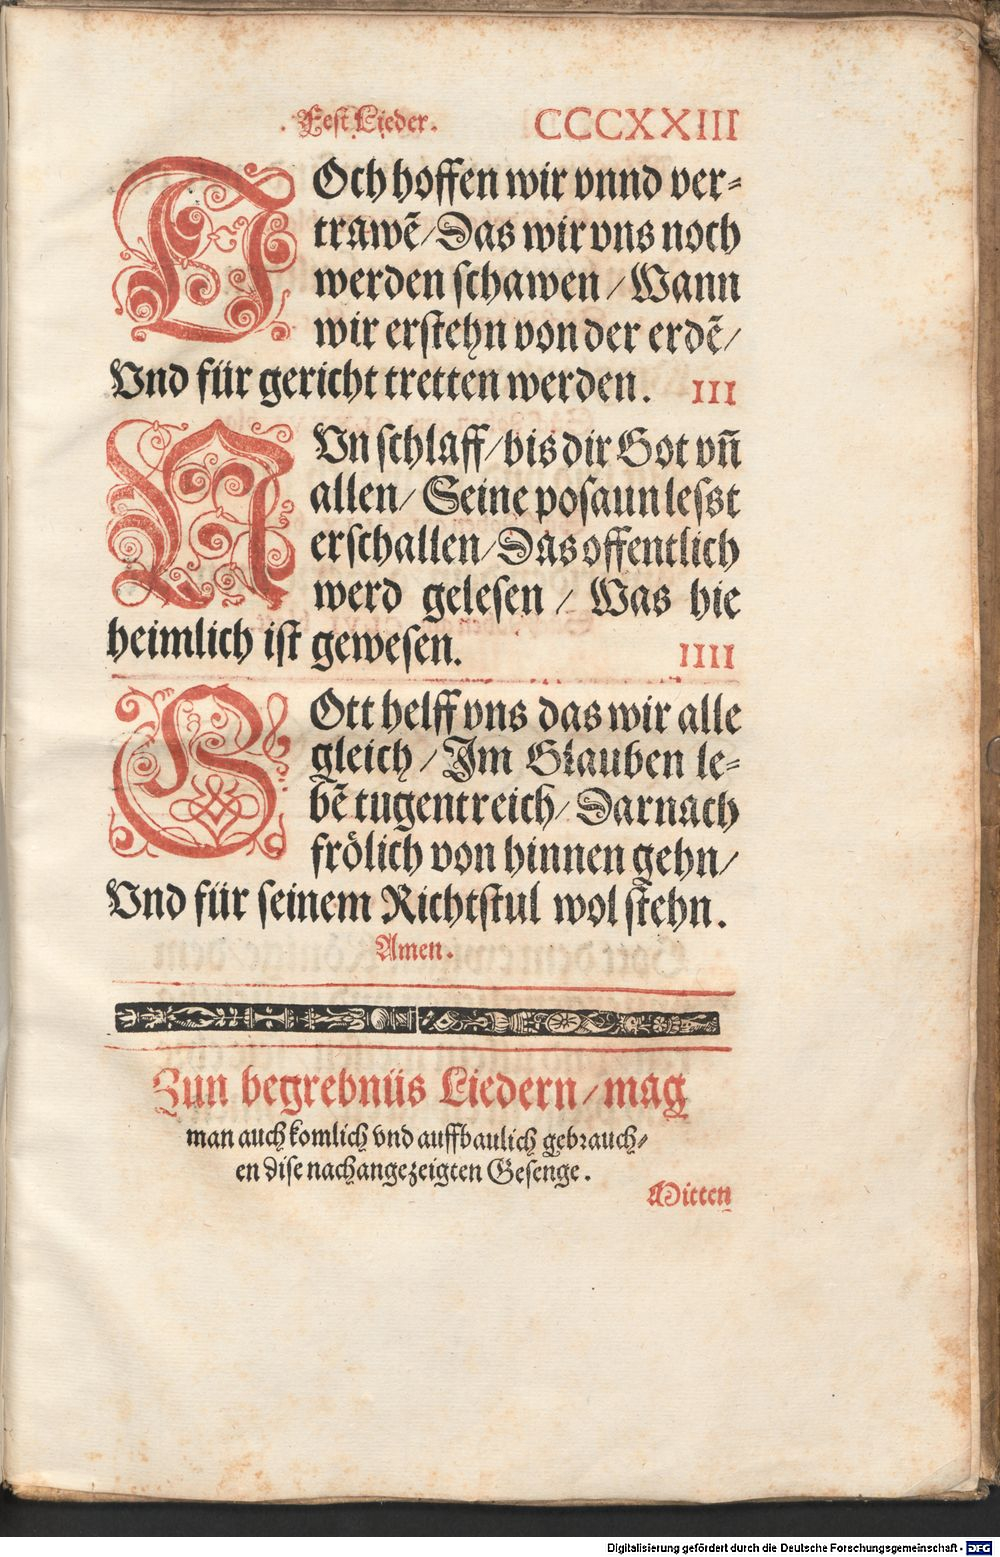 . Fest Lieder. CCCXXIII
NOch hoffen wir vnnd ver-
trawē/Das wir vns noch
werden schawen / Wann
wir erstehn von der erdē/
Vnd für gericht tretten werden. III
NVn schlaff/bis dir Got vñ
allen/ Seine posaun lesst
erschallen/Das offentlich
werd gelesen / Was hie
heimlich ist gewesen. IIII
GOtt helff vns das wir alle
gleich / Im Glauben le-
bē tugentreich/ Darnach
frölich von hinnen gehn/
Vnd für seinem Richtstul wol stehn.
Amen.
Zun begrebnüs Liedern/mag
man auch komlich vnd auffbaulich gebrauch-
en dise nachangezeigten Gesenge.
Mitten
Digitalisierung gefördert durch die Deutsche Forschungsgemeinschaft - DFG